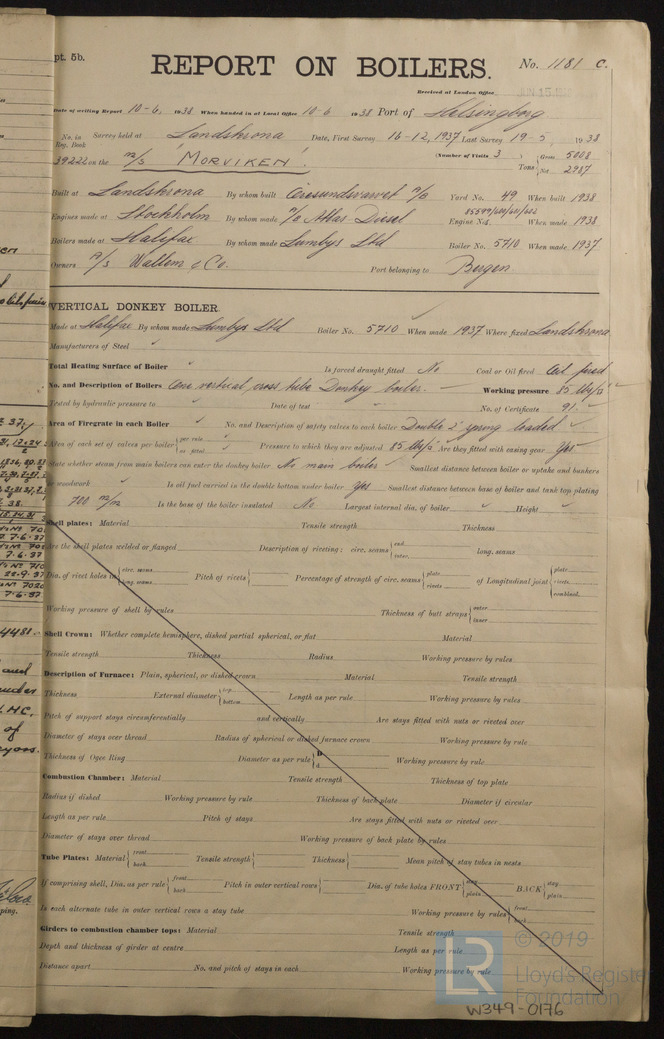 pt. 5b.
REPORT ON BOILERS.
No. 1181 C.
Received at London Office JUN 15 193
Date of writing Report 10-6, 1938 When handed in at Local Office 10-6 1938 Port of Helsingborg
No. in Reg. Book Survey held at Landskrona Date, First Survey 16-12, 1937 Last Survey 19-5, 1938
39222 on the M/S "MORVIKEN". (Number of Visits 3) Tons Gross 5008 Net 2987
Built at Landskrona By whom built Oresundsvarvet A/B Yard No. 49 When built 1938
Engines made at Stockholm By whom made A/B Atlas Diesel Engine No. When made 1938
Boilers made at Halifax By whom made Lumbys Ltd Boiler No. 5710 When made 1937
Owners A/S Wallem & Co. Port belonging to Bergen
VERTICAL DONKEY BOILER.
Made at Halifax By whom made Lumbys Ltd Boiler No. 5710 When made 1937 Where fixed Landskrona
Manufacturers of Steel
Total Heating Surface of Boiler Is forced draught fitted No Coal or Oil fired Oil fired
No. and Description of Boilers One vertical cross tube Donkey boiler. Working pressure 85 lbs/□"
Tested by hydraulic pressure to Date of test No. of Certificate 91
Area of Firegrate in each Boiler No. and Description of safety valves to each boiler Double 2" spring loaded
Area of each set of valves per boiler per rule as fitted Pressure to which they are adjusted 85 lbs/□" Are they fitted with easing gear Yes
State whether steam from main boilers can enter the donkey boiler No main boiler Smallest distance between boiler or uptake and bunkers
or woodwork Is oil fuel carried in the double bottom under boiler Yes Smallest distance between base of boiler and tank top plating
700 m/m Is the base of the boiler insulated No Largest internal dia. of boiler Height
Shell plates: Material Tensile strength Thickness
Are the shell plates welded or flanged Description of riveting: circ. seams end inter. long. seams
Dia. of rivet holes in circ. seams long. seams Pitch of rivets Percentage of strength of circ. seams plate rivets of Longitudinal joint plate rivets combined
Working pressure of shell by rules Thickness of butt straps outer inner
Shell Crown: Whether complete hemisphere, dished partial spherical, or flat Material
Tensile strength Thickness Radius Working pressure by rules
Description of Furnace: Plain, spherical, or dished crown Material Tensile strength
Thickness External diameter top bottom Length as per rule Working pressure by rules
Pitch of support stays circumferentially and vertically Are stays fitted with nuts or riveted over
Diameter of stays over thread Radius of spherical or dished furnace crown Working pressure by rule
Thickness of Ogee Ring Diameter as per rule D d Working pressure by rule
Combustion Chamber: Material Tensile strength Thickness of top plate
Radius if dished Working pressure by rule Thickness of back plate Diameter if circular
Length as per rule Pitch of stays Are stays fitted with nuts or riveted over
Diameter of stays over thread Working pressure of back plate by rules
Tube Plates: Material front back Tensile strength Thickness Mean pitch of stay tubes in nests
If comprising shell, Dia. as per rule front back Pitch in outer vertical rows Dia. of tube holes FRONT stay plain BACK stay plain
Is each alternate tube in outer vertical rows a stay tube Working pressure by rules front back
Girders to combustion chamber tops: Material Tensile strength
Depth and thickness of girder at centre Length as per rule
Distance apart No. and pitch of stays in each Working pressure by rule
© 2019
LR Lloyd's Register
Foundation
W349-0176